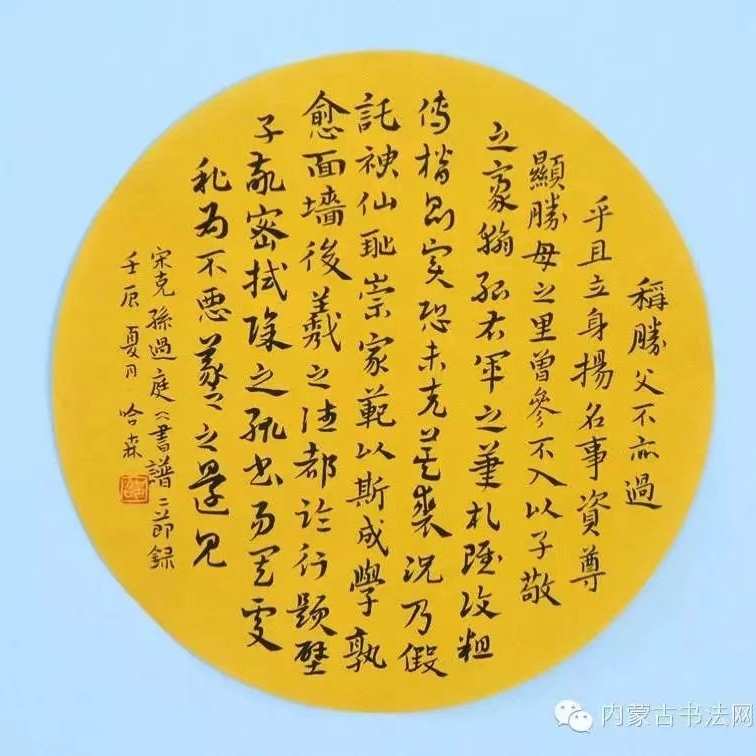 稱勝父不亦過
乎且立身揚名事資尊
顯勝母之里曾參不入以子敬
之豪翰紹右軍之筆札雖復粗
傳楷則實恐未克箕裘況乃假
託神仙恥崇家範以斯成學孰
愈面墻後羲之往都臨行題壁
子敬密拭除之輒書易其處
私為不惡羲之還見
宋克孫過庭《書譜》節録
壬辰夏月 哈森
内蒙古书法网